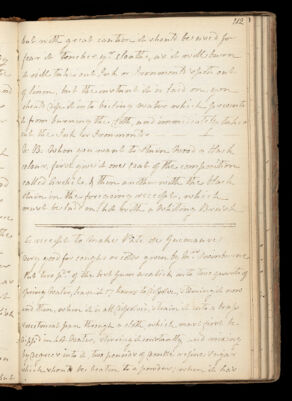 112
but with great caution it should be used for
fear it touches yr. cloaths, as it will burn
it will take out Ink or Ironmould spots out
of linen, but the instant it is laid on you
should dip it into boiling water which prevents
it from burning the cloth, and immediately takes
out the Ink or Ironmould
N.B. When you want to Stain Wood a black
colour, first give it one coat of the composition
called
& then another with the black
Stain in the foregoing receipt, which
must be laid on hot with a Whiting Brush
A receipt to make Pate de Guimauve
Very good for coughs or cold given by
Put two
of the best Gum arabick into two quarts of
spring water, leave it
hours to dissolve, stirring it now
and then, when it is all dissolved, strain it into a
preserving pan through a cloth, which must first be
dipped in hot water, stirring it constantly and mixing
by degrees into it two pounds of double refined Sugar
which should be beaten to a powder; when it has